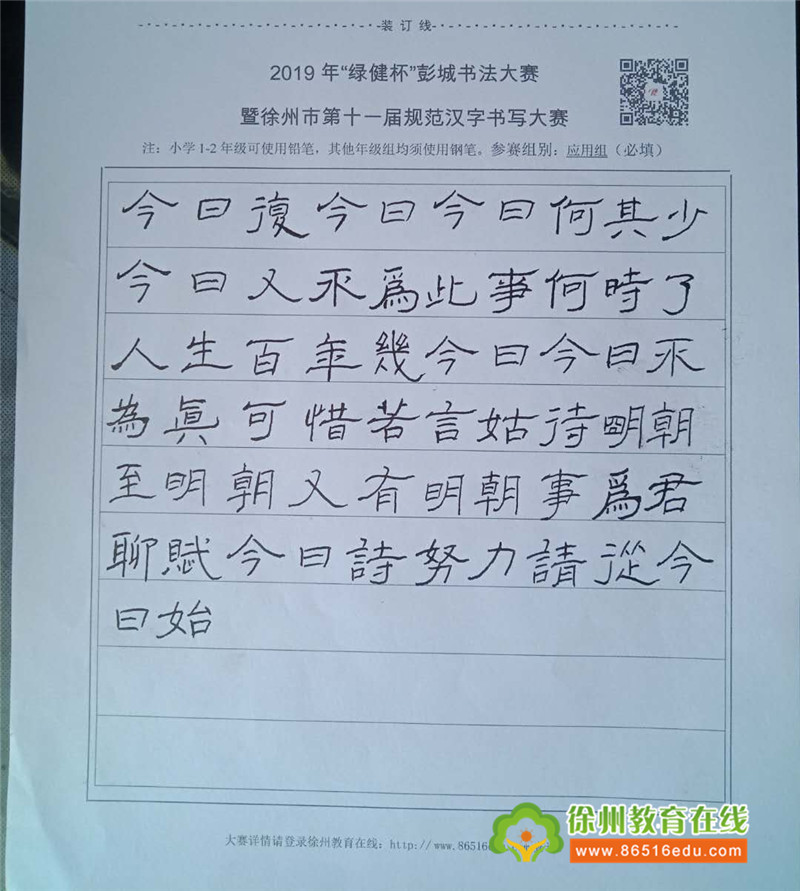 装 订 线
2019 年“绿健杯”彭城书法大赛
暨徐州市第十一届规范汉字书写大赛
注：小学1-2年级可使用铅笔，其他年级组均须使用钢笔。参赛组别：应用组（必填）
今日復今日今日何其少
今日又不爲此事何時了
人生百年幾今日今日不
為真可惜若言姑待明朝
至明朝又有明朝事爲君
聊賦今日詩努力請從今
日始
大赛详情请登录徐州教育在线：http://www.86516
徐州教育在线
www.86516edu.com